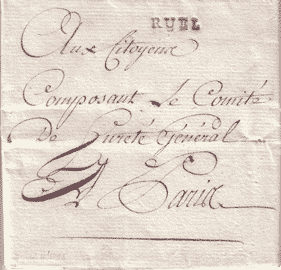 RUEL
Aux Citoyens
Composant Le Comité
De Sureté Général
A Paris